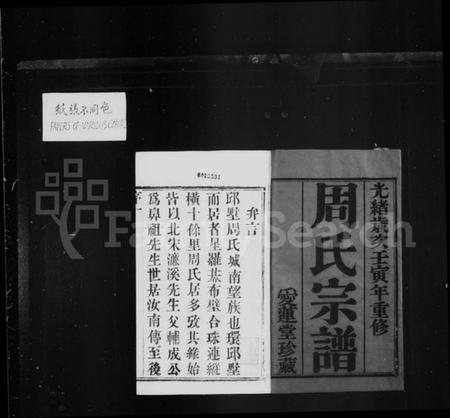 紙張不同色
PAPERS OF VARIOUS COLOR
FamilySearch
光緒歲次壬寅年重修
周氏宗譜
愛蓮堂珍藏
弁言
邱墅周氏城南望族也環邱墅
而居者星羅棊布璧合珠連縱
橫十餘里周氏居多攷其緣始
皆以北宋濂溪先生父輔成公
為鼻祖先生世居汝南傳至後